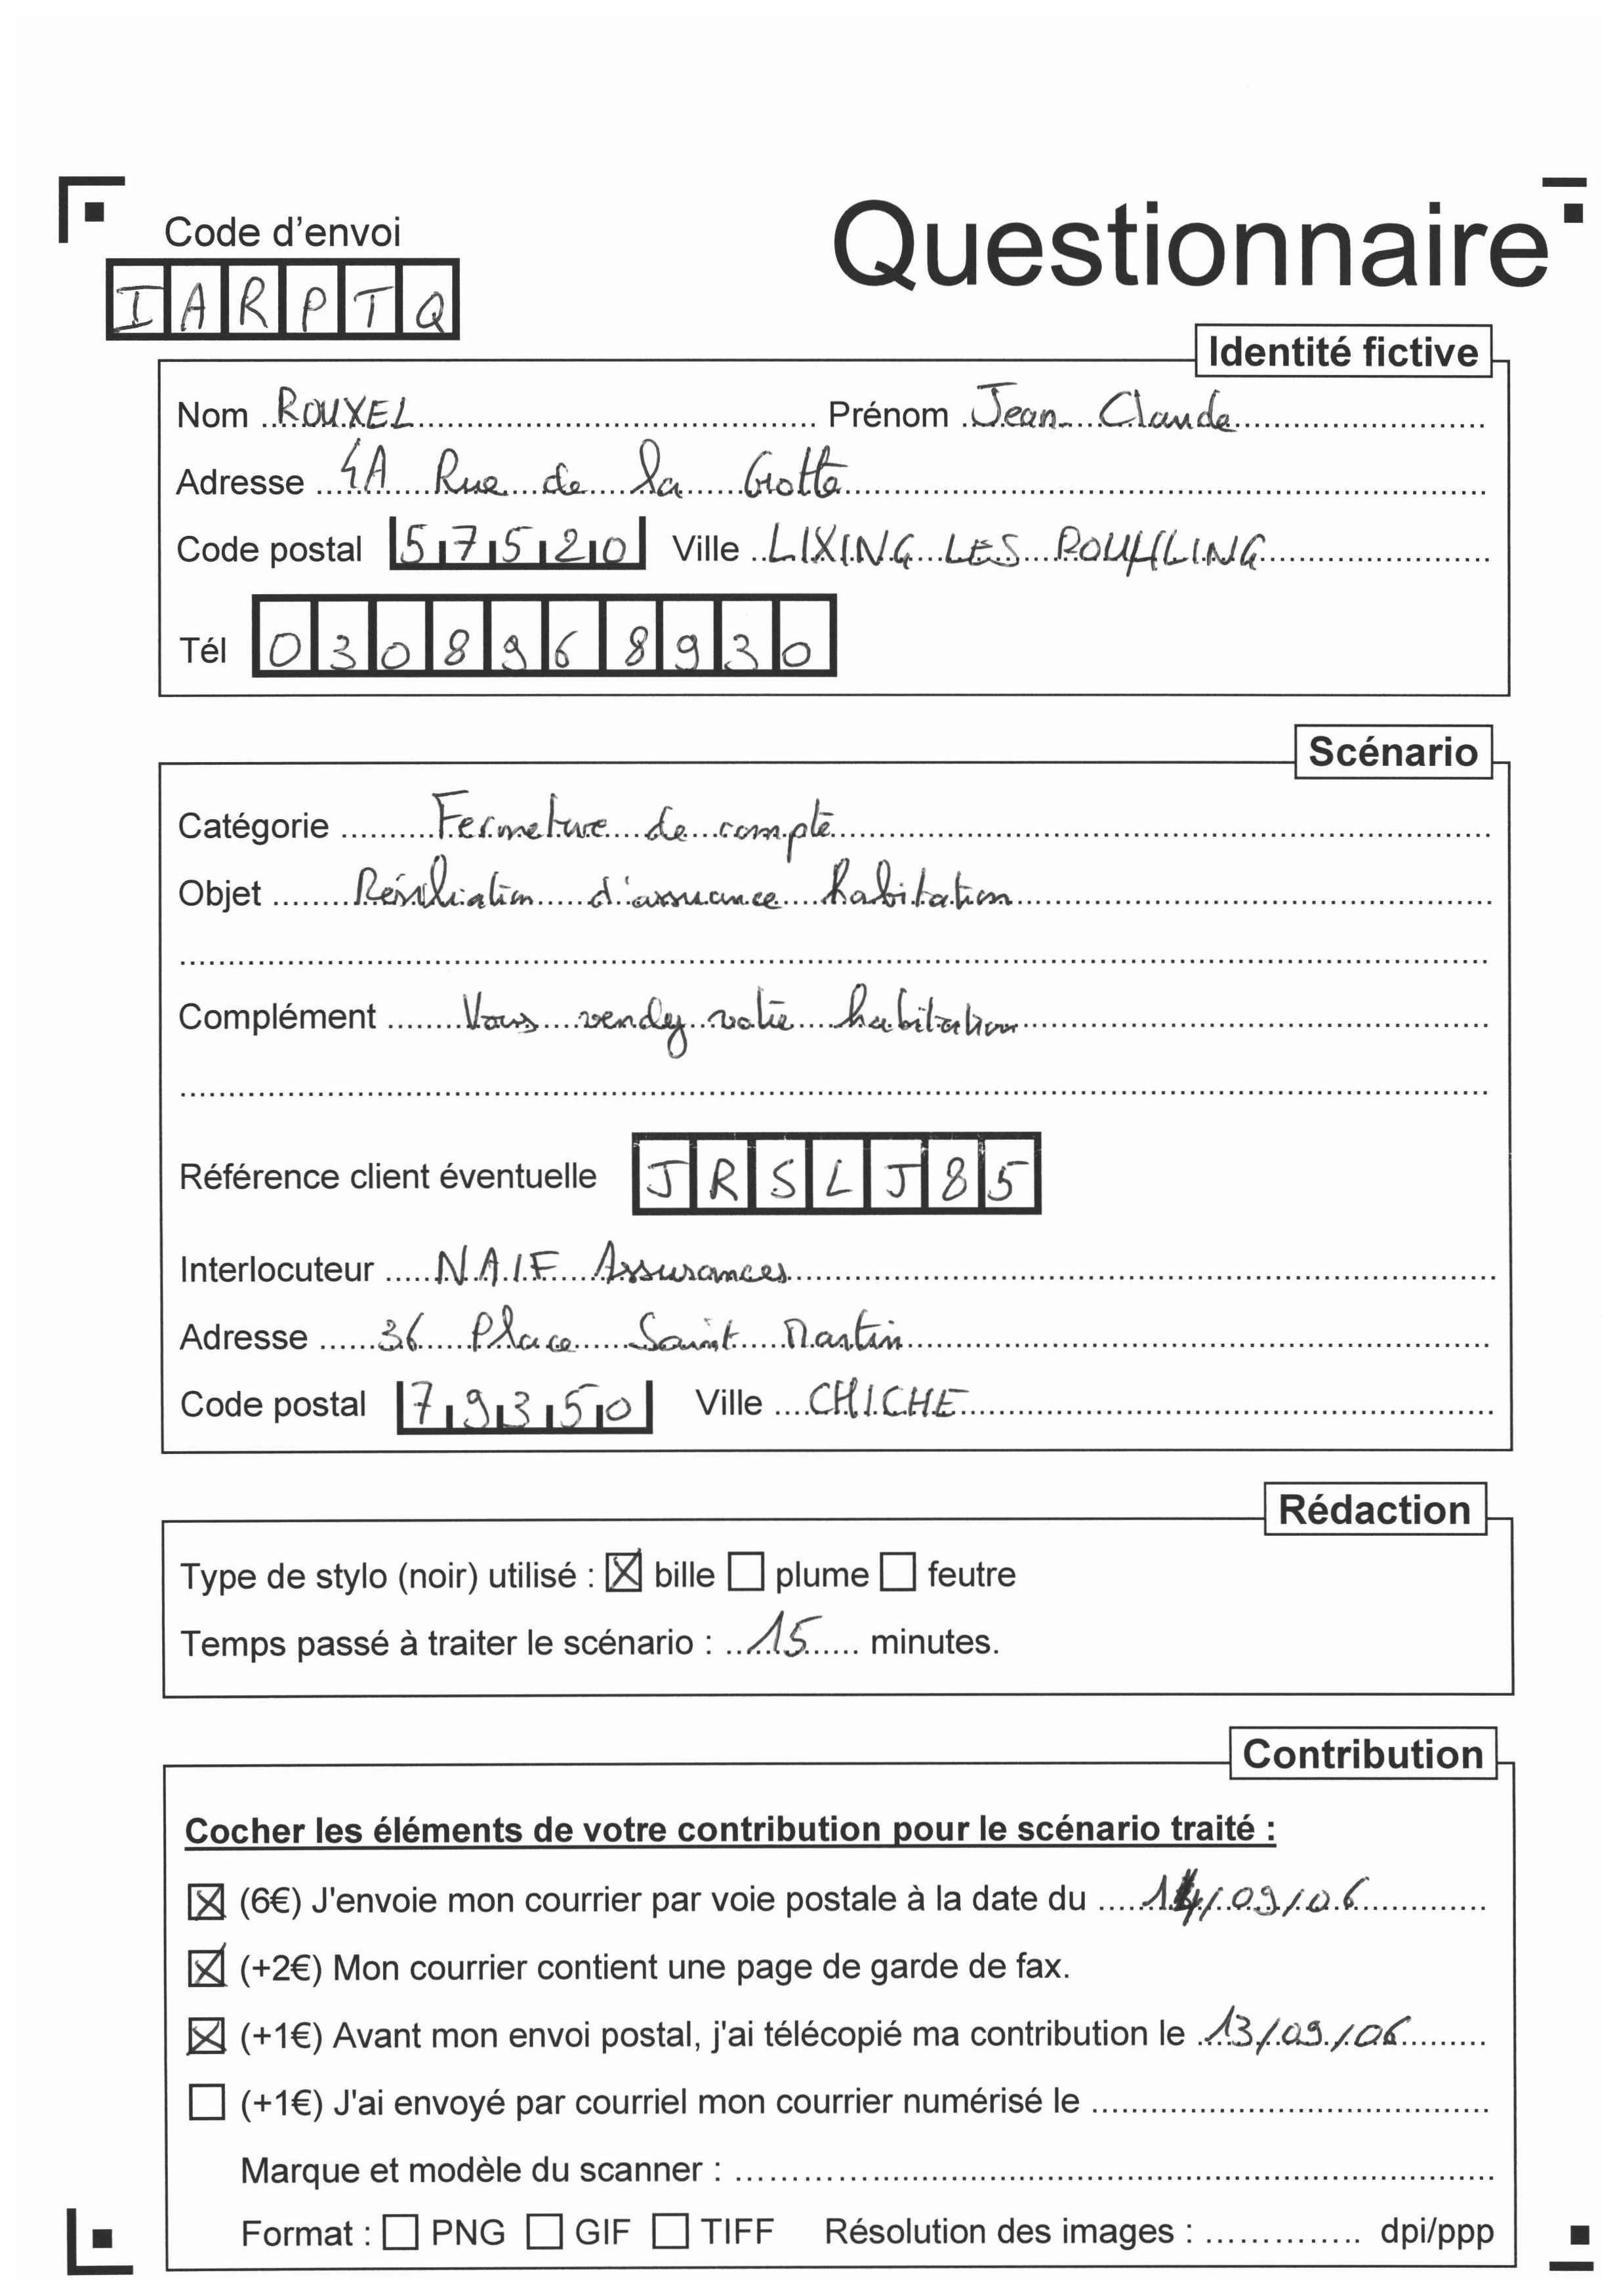 Code d'envoi
Questionnaire
IARPTQ
Identité fictive
Nom ROUXEL Prénom Jean-Claude
Adresse 4A Rue de la Grotte
Code postal 57520 Ville LIXING LES ROUHLING
Tél 0308968930
Scénario
Catégorie Fermeture de compte
Objet Résiliation d'assurance habitation
Complément Vous vendez votre habitation
Référence client éventuelle JRSLJ85
Interlocuteur NAIF Assurances
Adresse 36 Place Saint Martin
Code postal 79350 Ville CHICHE
Rédaction
Type de stylo (noir) utilisé : ☒ bille ☐ plume ☐ feutre
Temps passé à traiter le scénario : 15 minutes.
Contribution
Cocher les éléments de votre contribution pour le scénario traité :
☒ (6€) J'envoie mon courrier par voie postale à la date du 14/09/06
☒ (+2€) Mon courrier contient une page de garde de fax.
☒ (+1€) Avant mon envoi postal, j'ai télécopié ma contribution le 13/09/06
☐ (+1€) J'ai envoyé par courriel mon courrier numérisé le
Marque et modèle du scanner :
Format : ☐ PNG ☐ GIF ☐ TIFF Résolution des images : dpi/ppp